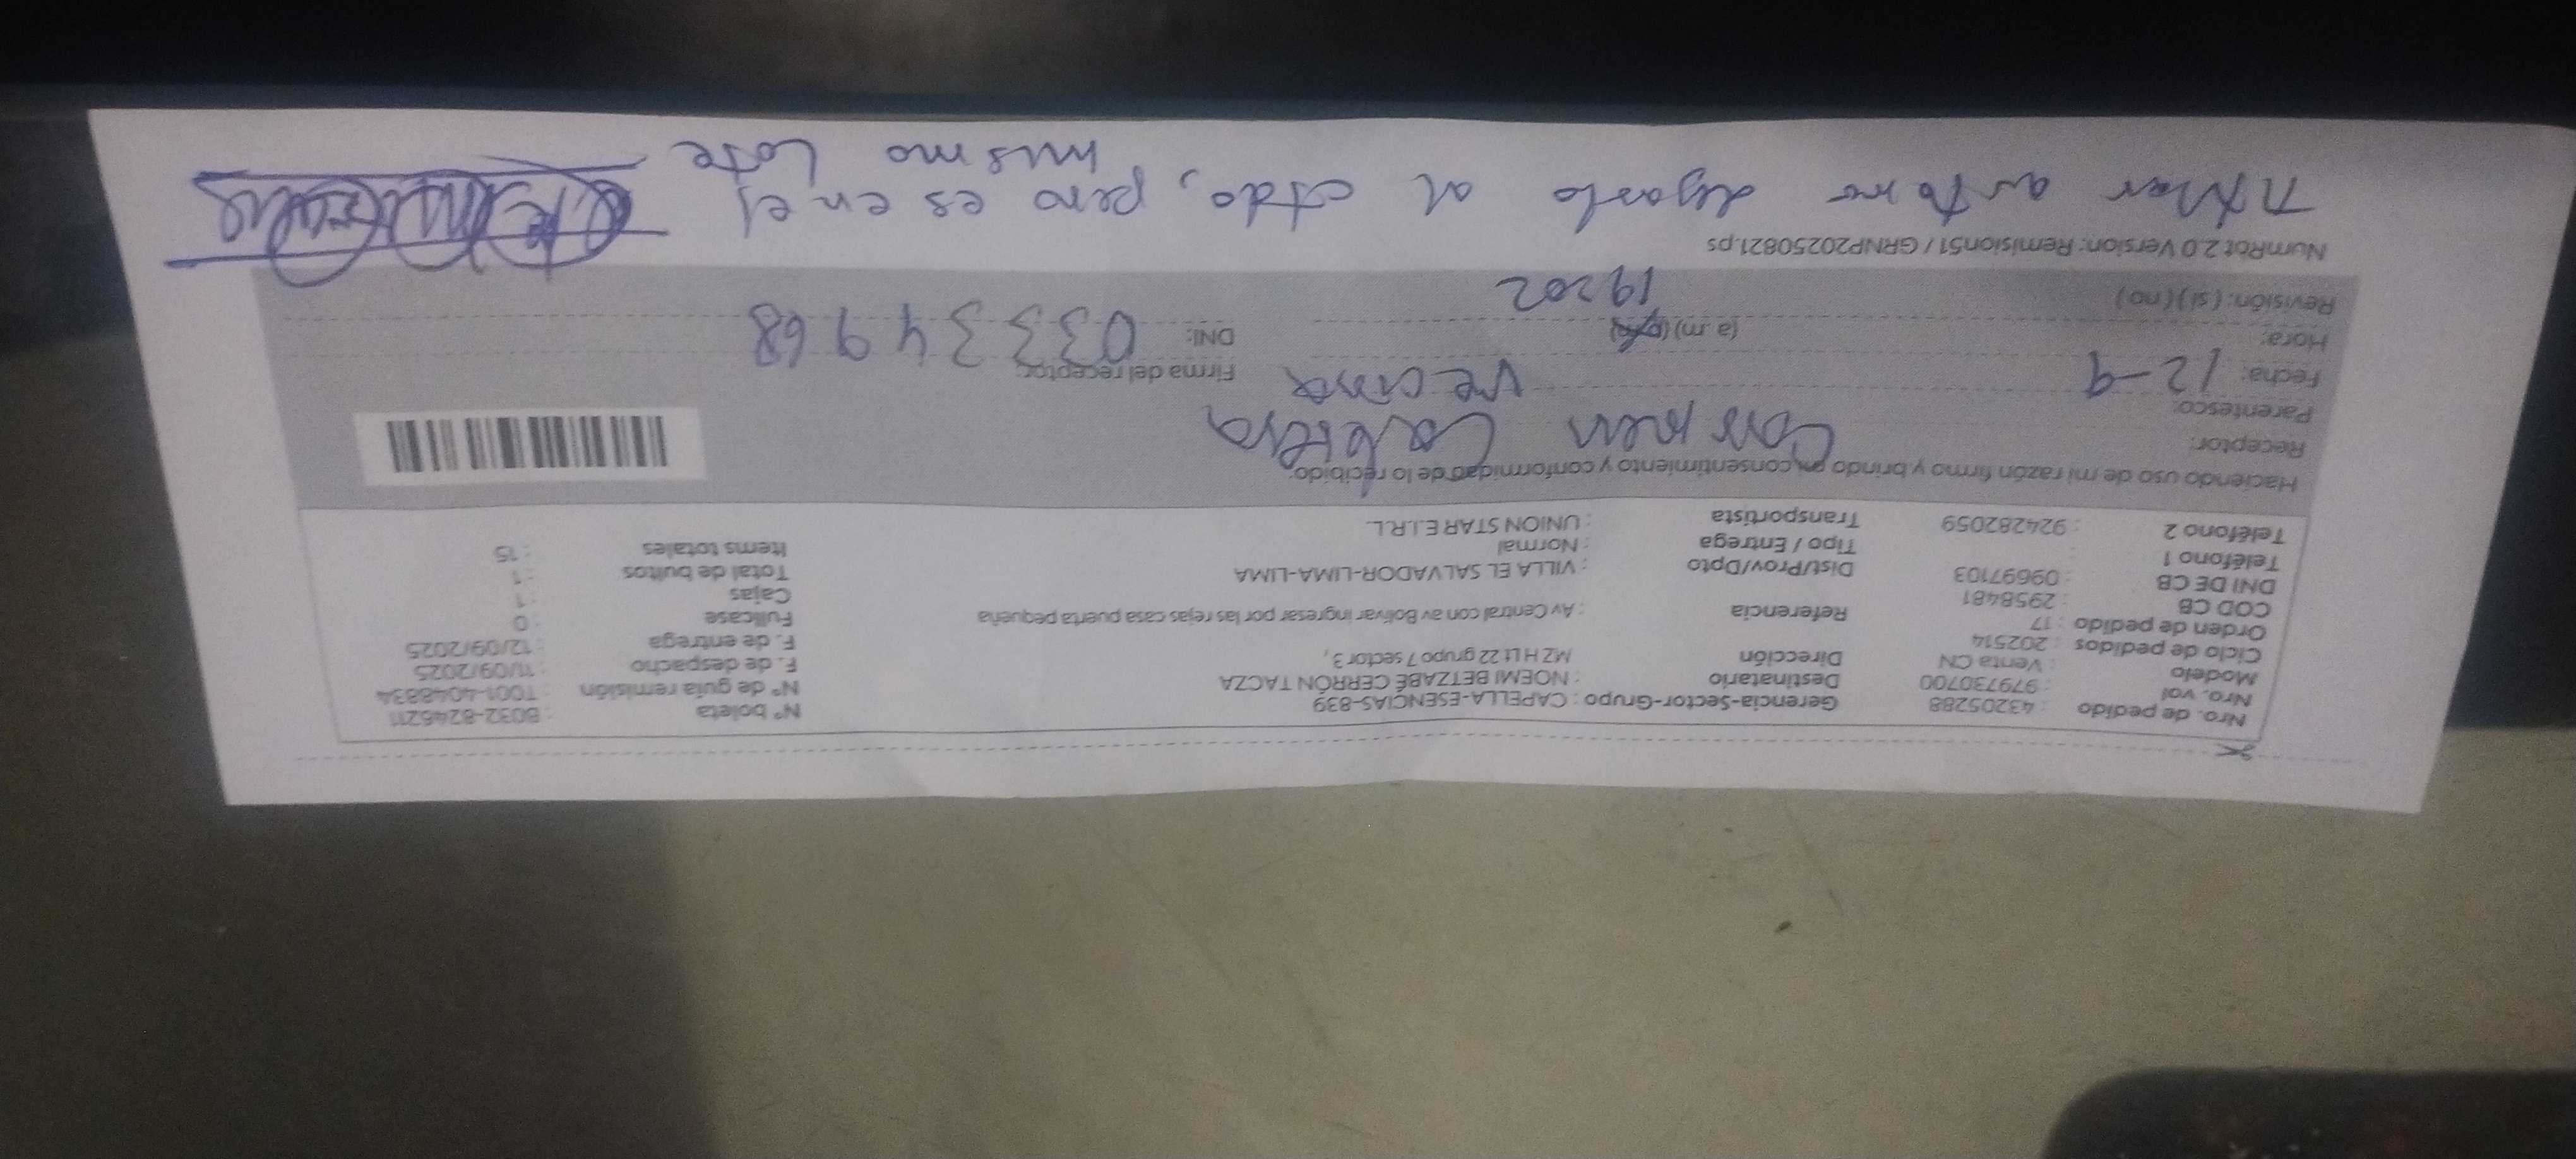 Nro. de pedido : 43205288 Gerencia-Sector-Grupo : CAPELLA-ESENCIAS-839 N° boleta : B032-8246211
Nro. vol : 979730700 Destinatario : NOEMI BETZABÉ CERRÓN TACZA N° de guía remisión : T001-4048834
Modelo : Venta CN Dirección MZ H Lt 22 grupo 7 sector 3, F. de despacho : 11/09/2025
Ciclo de pedidos : 202514 F. de entrega : 12/09/2025
Orden de pedido : 17 Referencia : Av Central con av Bolivar ingresar por las rejas casa puerta pequeña Fullcase : 0
COD CB : 2958481 Cajas : 1
DNI DE CB : 09697103 Dist/Prov/Dpto : VILLA EL SALVADOR-LIMA-LIMA Total de bultos : 1
Teléfono 1 : Tipo / Entrega : Normal Items totales : 15
Teléfono 2 : 924282059 Transportista : UNION STAR E.I.R.L.
Haciendo uso de mi razón firmo y brindo mi consentimiento y conformidad de lo recibido:
Receptor: Carmen Cabrera
Parentesco: vecina
Fecha: 12-9 Firma del receptor:
Hora: (a.m) (p.m) DNI: 03334968
Revisión: (si) (no) 19202
NumRot 2.0 Version: Remision51 / GRNP20250821.ps
al ctdo, pero es en el
mismo Lote